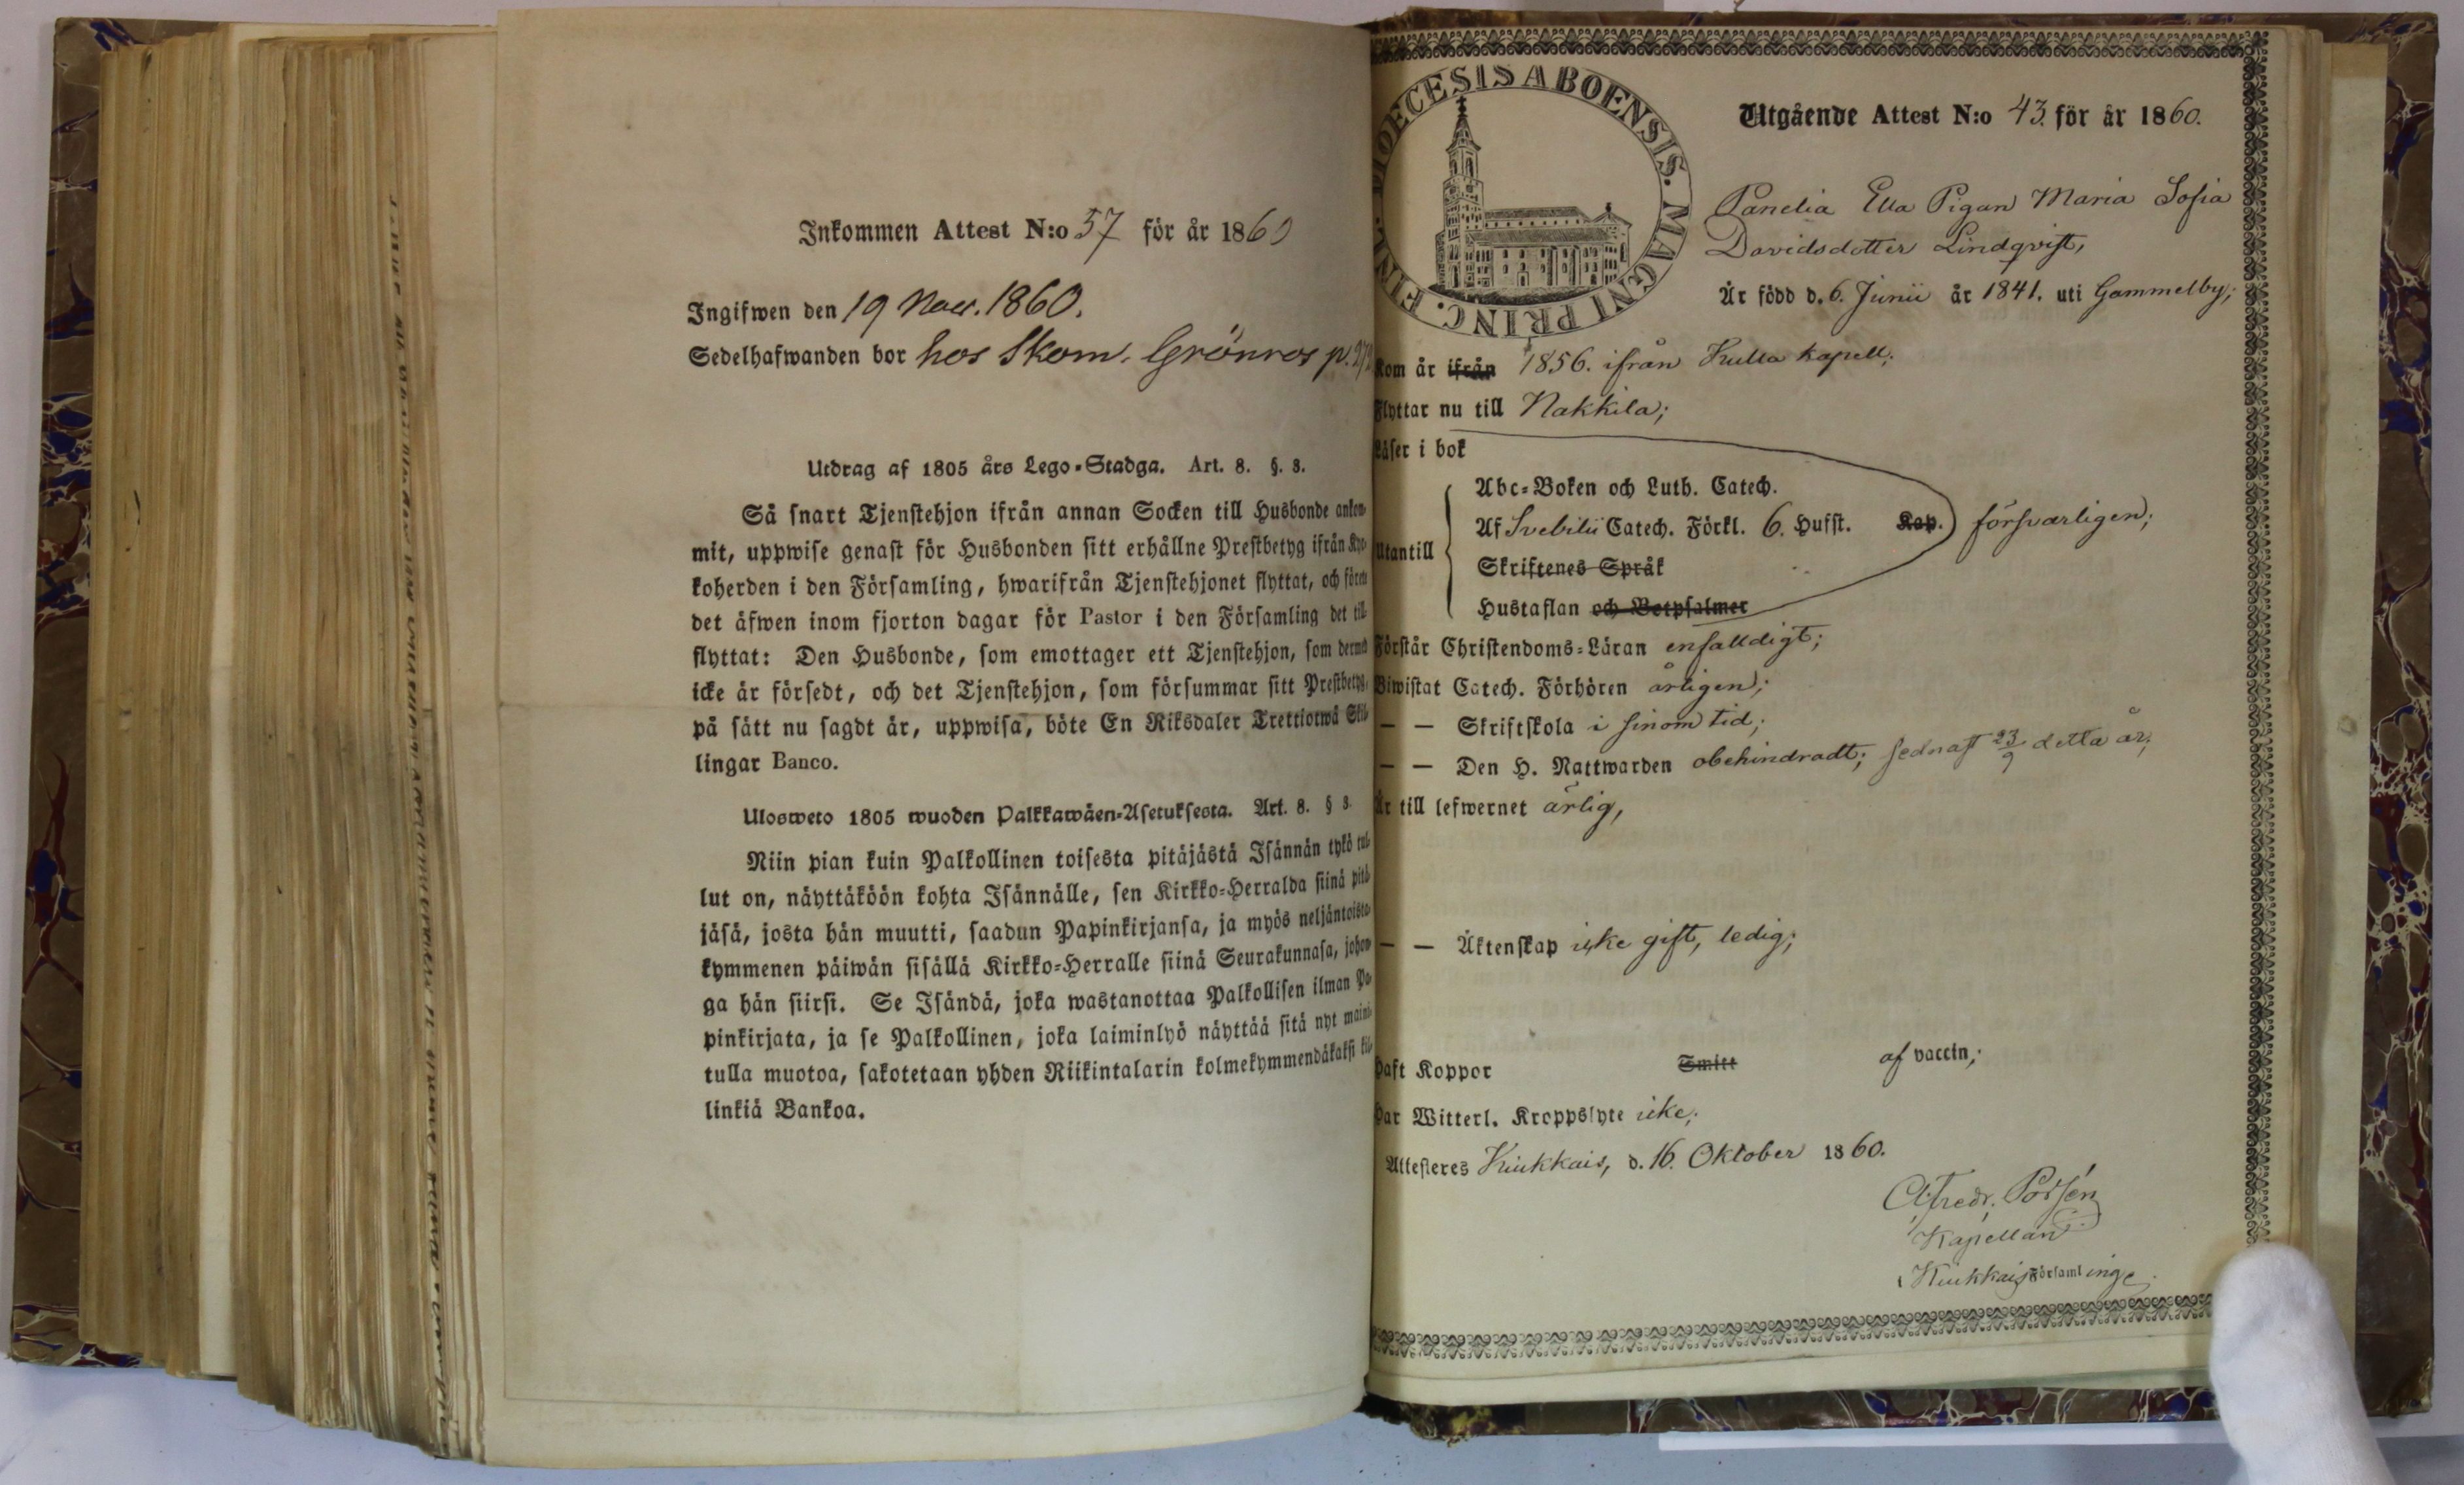 Inkommen Attest N:o 57 för år 1860
Ingifwen den 19 Nov. 1860.
Sedelhafwanden bor hos Skom. Grönros p.
Utdrag af 1805 års Lego-Stadga. Art. 8. §. 8.
Så snart Tjenstehjon ifrån annan Socken till Husbonde ankom-
mit, uppwise genast för Husbonden sitt erhållne Prestbetyg ifrån Kyr-
koherden i den Församling, hwarifrån Tjenstehjonet flyttat, och förete
det äfwen inom fjorton dagar för Pastor i den Församling det till-
flyttat: Den Husbonde, som emottager ett Tjenstehjon, som dermed
icke är försedt, och det Tjenstehjon, som försummar sitt Prestbetyg,
på sätt nu sagdt är, uppwisa, böte En Riksdaler Trettiotwå Skil-
lingar Banco.
Ulosweto 1805 wuoden Palkkawäen-Asetuksesta. Art. 8. § 8.
Niin pian kuin Palkollinen toisesta pitäjästä Isännän tykö tul-
lut on, näyttäköön kohta Isännälle, sen Kirkko-Herralda siinä pitä-
jäsä, josta hän muutti, saadun Papinkirjansa, ja myös neljäntoista-
kymmenen päiwän sisällä Kirkko-Herralle siinä Seurakunnasa, johon-
ga hän siirsi. Se Isändä, joka wastanottaa Palkollisen ilman Pa-
pinkirjata, ja se Palkollinen, joka laiminlyö näyttää sitä nyt maini-
tulla muotoa, sakotetaan yhden Riikintalarin kolmekymmendäkaksi kil-
linkiä Bankoa.
DIOECESIS ABOENSIS. MAGNI PRINC. FINL.
Utgående Attest N:o 43. för år 1860.
Panelia Ella Pigan Maria Sofia
Davidsdotter Lindqvist,
Är född d. 6. Junii år 1841. uti Gammelby;
Kom år ifrån 1856. ifrån Kulla kapell;
Flyttar nu till Nakkila;
Läser i bok
Abc-Boken och Luth. Catech.
Utantill Af Svebilii Catech. Förkl. 6. Hufst. Kap. försvarligen;
Skriftenes Språk
Hustaflan och Botpsalmer
Förstår Christendoms-Läran enfalldigt;
Biwistat Catech. Förhören årligen;
— — Skriftskola i sinom tid;
— — Den H. Nattwarden obehindradt; sednast 23/9 detta år;
Är till lefwernet ärlig,
— — Äktenskap icke gift, ledig;
Haft Koppor Smitt af vaccin;
Har Witterl. Kroppslyte icke;
Attesteres Kiukkais, d. 16. Oktober 1860.
Alfredr. Porsén
Kapellan
Kiukkais Församlinge.